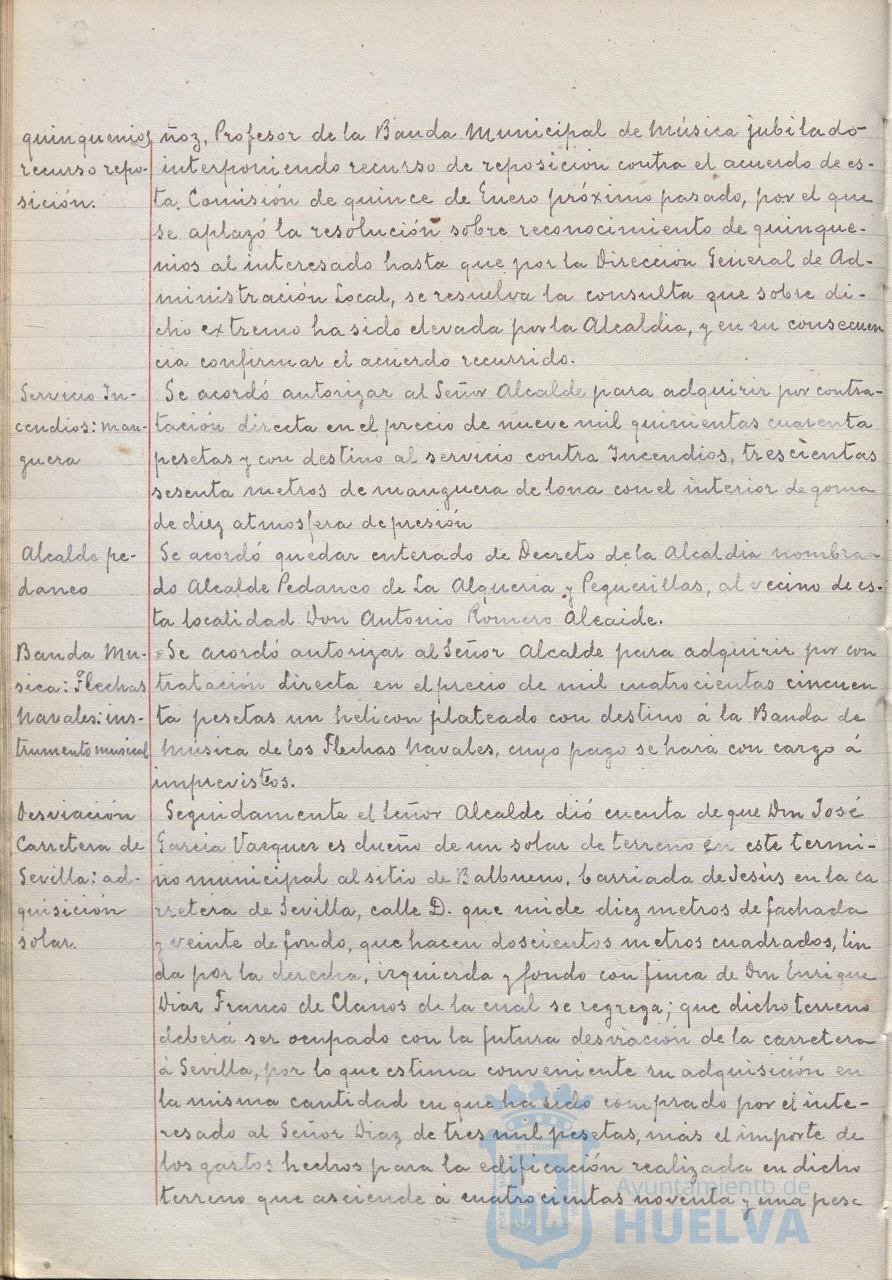 quinquenios, ñoz, Profesor de la Banda Municipal de Música jubilado
recurso repo- interponiendo recurso de reposición contra el acuerdo de es-
sición. ta Comisión de quince de Enero próximo pasado, por el que
se aplazó la resolución sobre reconocimiento de quinque-
nios al interesado hasta que por la Dirección General de Ad-
ministración Local, se resuelva la consulta que sobre di-
cho extremo ha sido elevada por la Alcaldia, y en su consecuen
cia confirmar el acuerdo recurrido.
Servicio In- Se acordó autorizar al Señor Alcalde para adquirir por contra-
cendios: man- tación directa en el precio de nueve mil quinientas cuarenta
guera pesetas y con destino al servicio contra Incendios, trescientas
sesenta metros de manguera de lona con el interior de goma
de diez atmosfera de presión
Alcalde pe- Se acordó quedar enterado de Decreto de la Alcaldia nombran
daneo do Alcalde Pedaneo de La Alqueria y Peguerillas, al vecino de es-
ta localidad Don Antonio Romero Alcaide.
Banda Mu- Se acordó autorizar al Señor Alcalde para adquirir por con
sica: Flechas tratación directa en el precio de mil cuatrocientas cincuen
Navales: ins- ta pesetas un helicon plateado con destino á la Banda de
trumento musical música de los Flechas Navales, cuyo pago se hará con cargo á
imprevistos.
Desviación Seguidamente el Señor Alcalde dió cuenta de que Don José
Carretera de Garcia Vazquez es dueño de un solar de terreno en este termi-
Sevilla: ad- no municipal al sitio de Balbueno, barriada de Jesús en la ca
quisición rretera de Sevilla, calle D. que mide diez metros de fachada
solar. y veinte de fondo, que hacen doscientos metros cuadrados, lin
da por la derecha, izquierda y fondo con finca de Don Enrique
Diaz Franco de Llanos de la cual se regrega; que dicho terreno
deberá ser ocupado con la futura desviación de la carretera
á Sevilla, por lo que estima conveniente su adquisición en
la misma cantidad en que ha sido comprado por el inte-
resado al Señor Diaz de tres mil pesetas, más el importe de
los gastos hechos para la edificación realizada en dicho
terreno que asciende á cuatrocientas noventa y una pese
Ayuntamiento de
HUELVA